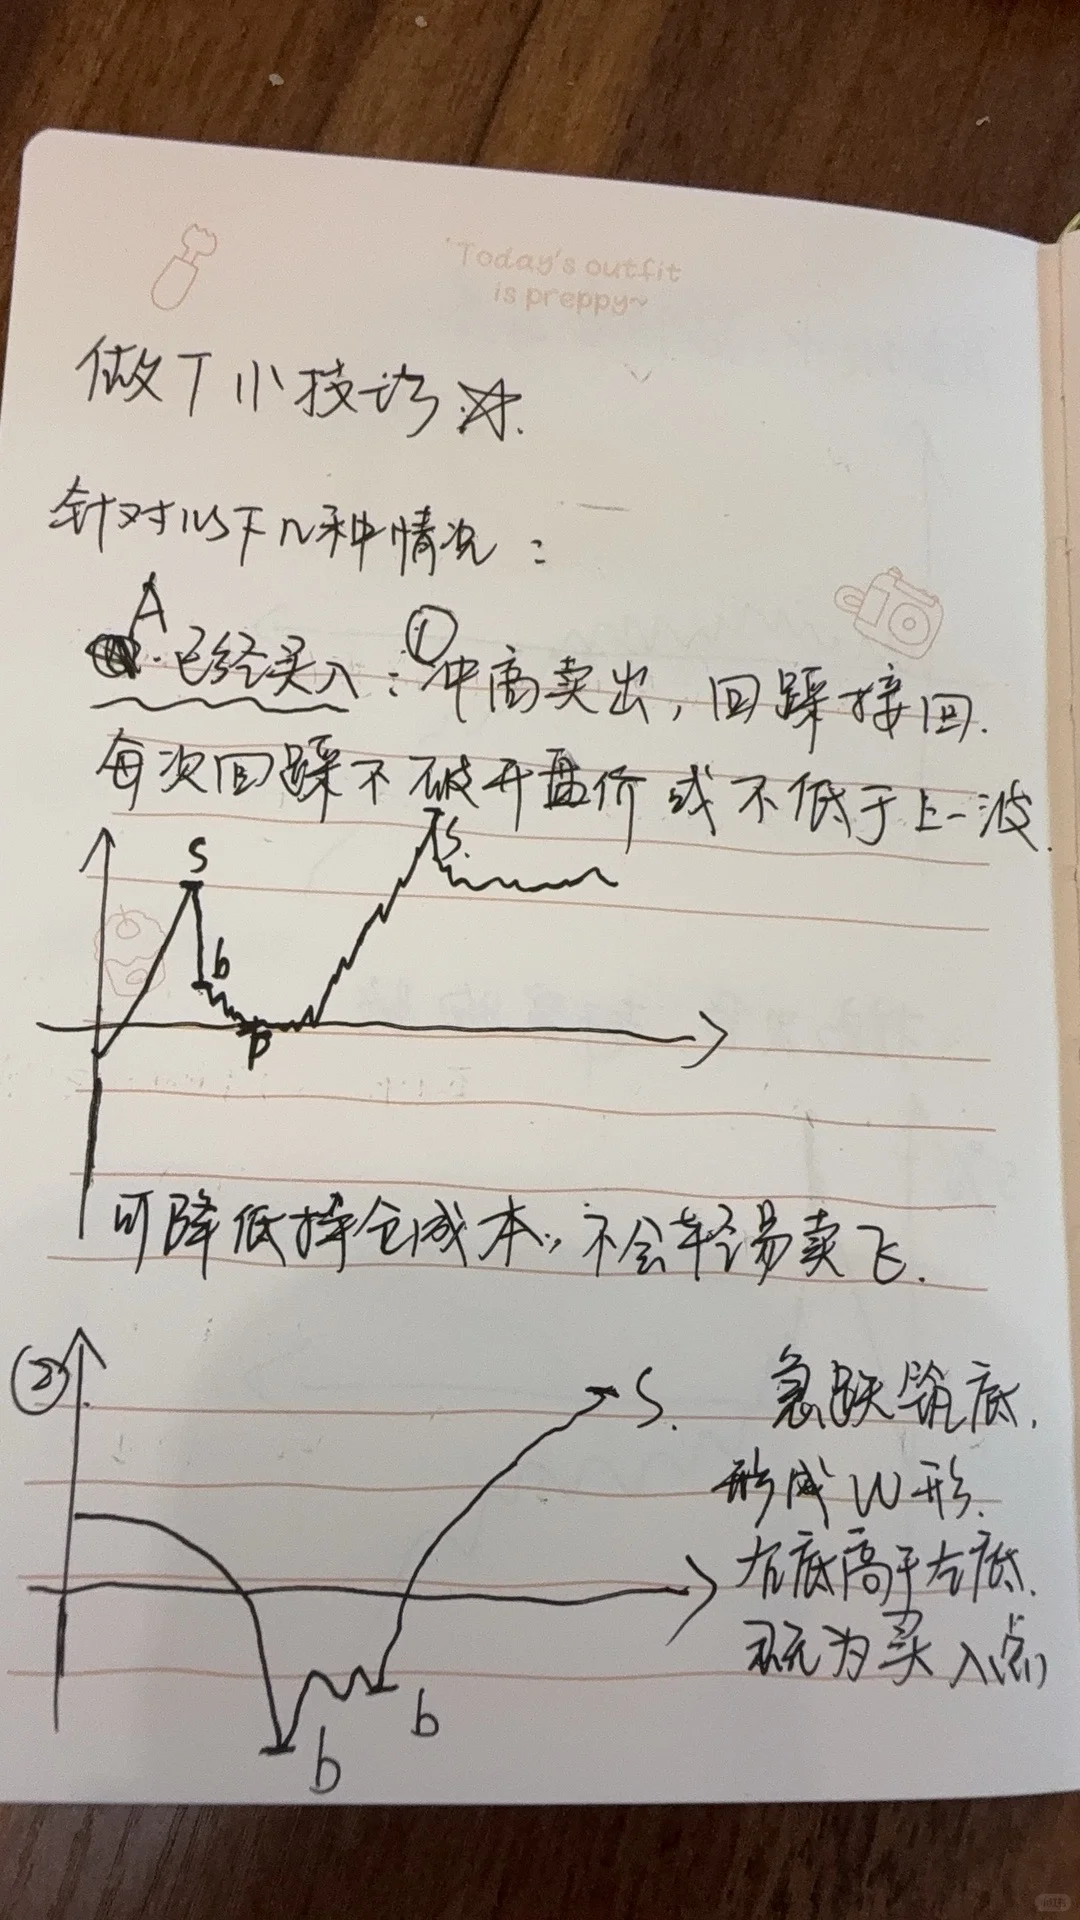 Today's outfit
is preppy~
做T小技巧
针对以下几种情况：
A
已经买入：①冲高卖出，回踩接回.
每次回踩不破开盘价或不低于上一波.
S
S.
b
b
可降低持仓成本，不会轻易卖飞.
②
S.
急跌筑底.
形成W形.
右底高于左底.
既为买入点
b
b